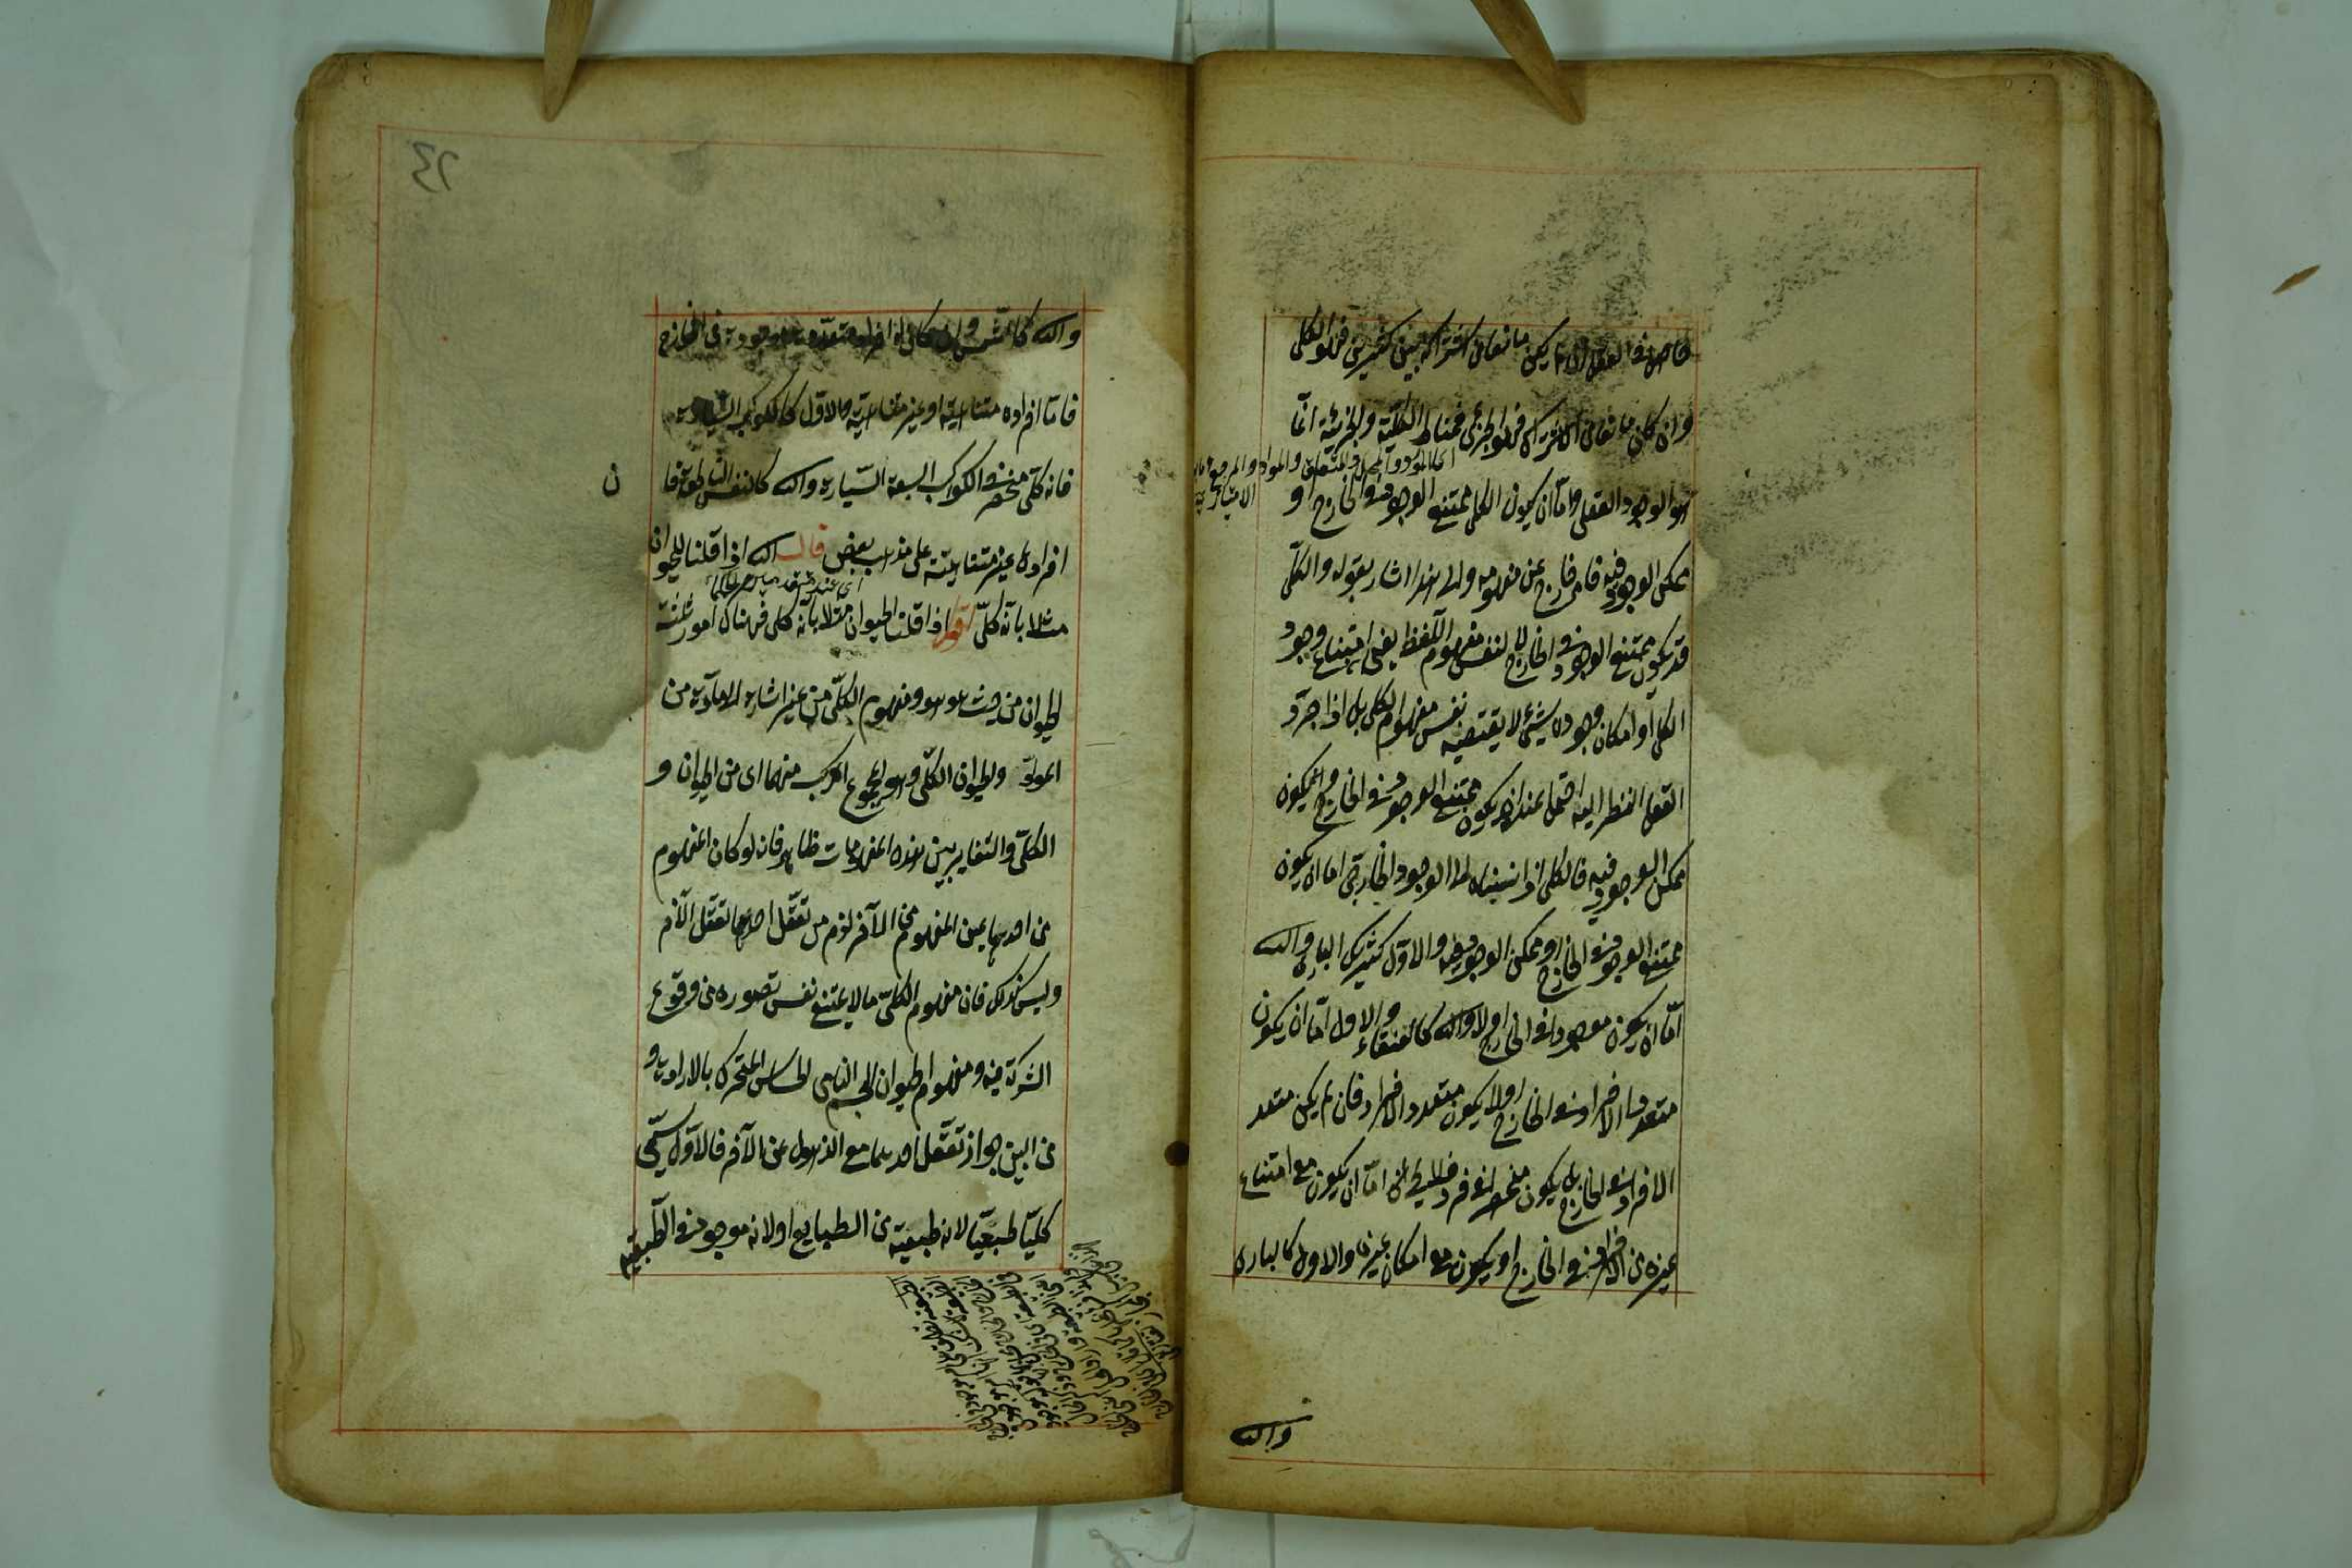 حاصل في العقل ان لم يكن مانعا من اشتراكه بين كثيرين فهو الكلي
وان كان مانعا من الاشتراك فهو الجزئي فمناط الكلية والجزئية انما
هو الوجود العقلي واما ان يكون الكلي ممتنع الوجود في الخارج او
ممكن الوجود فيه فامر خارج عن مفهومه والى هذا اشار بقوله والكلي
قد يكون ممتنع الوجود في الخارج لا لنفس مفهوم اللفظ يعني امتناع وجود
الكلي او امكان وجوده شيء لا يقتضيه نفس مفهوم الكلي بل اذا جرد
العقل النظر اليه احتمل عنده ان يكون ممتنع الوجود في الخارج وان يكون
ممكن الوجود فيه فالكلي اذا نسبناه الى الوجود الخارجي اما ان يكون
ممتنع الوجود في الخارج او ممكن الوجود فيه والاول كشريك الباري والثه
اما ان يكون موجودا في الخارج اولا والثه كالعنقاء والاول اما ان يكون
متعدد الافراد في الخارج اولا يكون متعدد الافراد فان لم يكن متعدد
الافراد في الخارج بل يكون منحصرا في فرد فلا يخلو اما ان يكون مع امتناع
غيره من الافراد في الخارج او يكون مع امكان غيره والاول كالباري
والثه
والثه كالشمس وان كان له افراد متعددة موجودة في الخارج
فاما افراده متناهية او غير متناهية والاول كالكوكب السيارة
فانه كلي منحصر في الكواكب السبعة السيارة والثه كالنفس الناطقة فا
ن
افرادها غير متناهية على مذهب بعض قال الثه اذا قلنا للحيوان
مثلا بانه كلي اقول اذا قلنا الحيوان مثلا بانه كلي فهناك امور ثلثة
الحيوان من حيث هو هو ومفهوم الكلي من غير اشارة الى مادة من
المواد والحيوان الكلي وهو المجموع المركب منهما اى من الحيوان و
الكلي والتغاير بين هذه المفهومات ظاهر فانه لو كان المفهوم
من احدهما عين المفهوم من الآخر لزم من تعقل احدهما تعقل الآخر
وليس كذلك فان مفهوم الكلي ما لا يمتنع نفس تصوره من وقوع
الشركة فيه ومفهوم الحيوان الجسم النامي الحساس المتحرك بالارادة و
من البين جواز تعقل احدهما مع الذهول عن الآخر فالاول يسمى
كليا طبيعيا لانه طبيعة من الطبايع او لانه موجود في الطبيعة